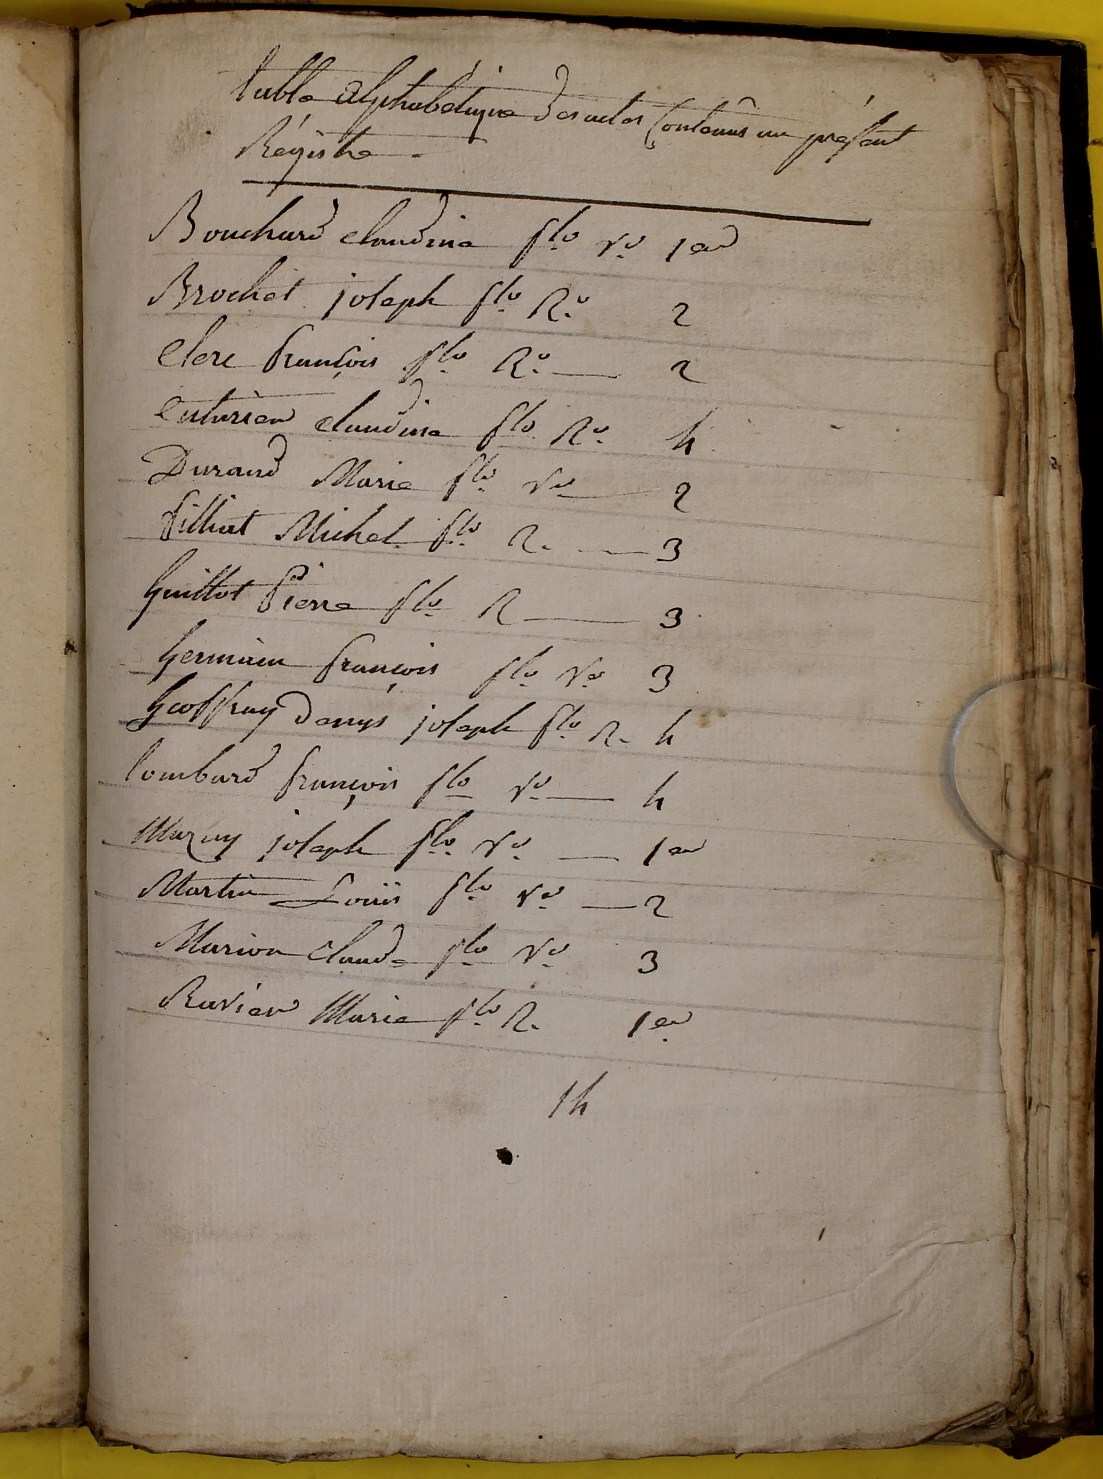 table alphabetique des actes Contenus au présent
Régistre -
Bouchard claudine flo vo 1er
Brochet joseph flo Ro 2
Clerc françois flo Ro — 2
claudine flo Ro 4
Durand Marie flo vo — 2
filliat Michel flo R. — 3
Guillot Pierre flo R — 3
Germain françois flo vo 3
Geoffray Denys joseph flo R. 4
Lombard françois flo vo — 4
Mazuy joseph flo vo — 1er
Martin Louis flo vo — 2
Marion claude flo vo 3
Ravier Marie flo R. 1er
14